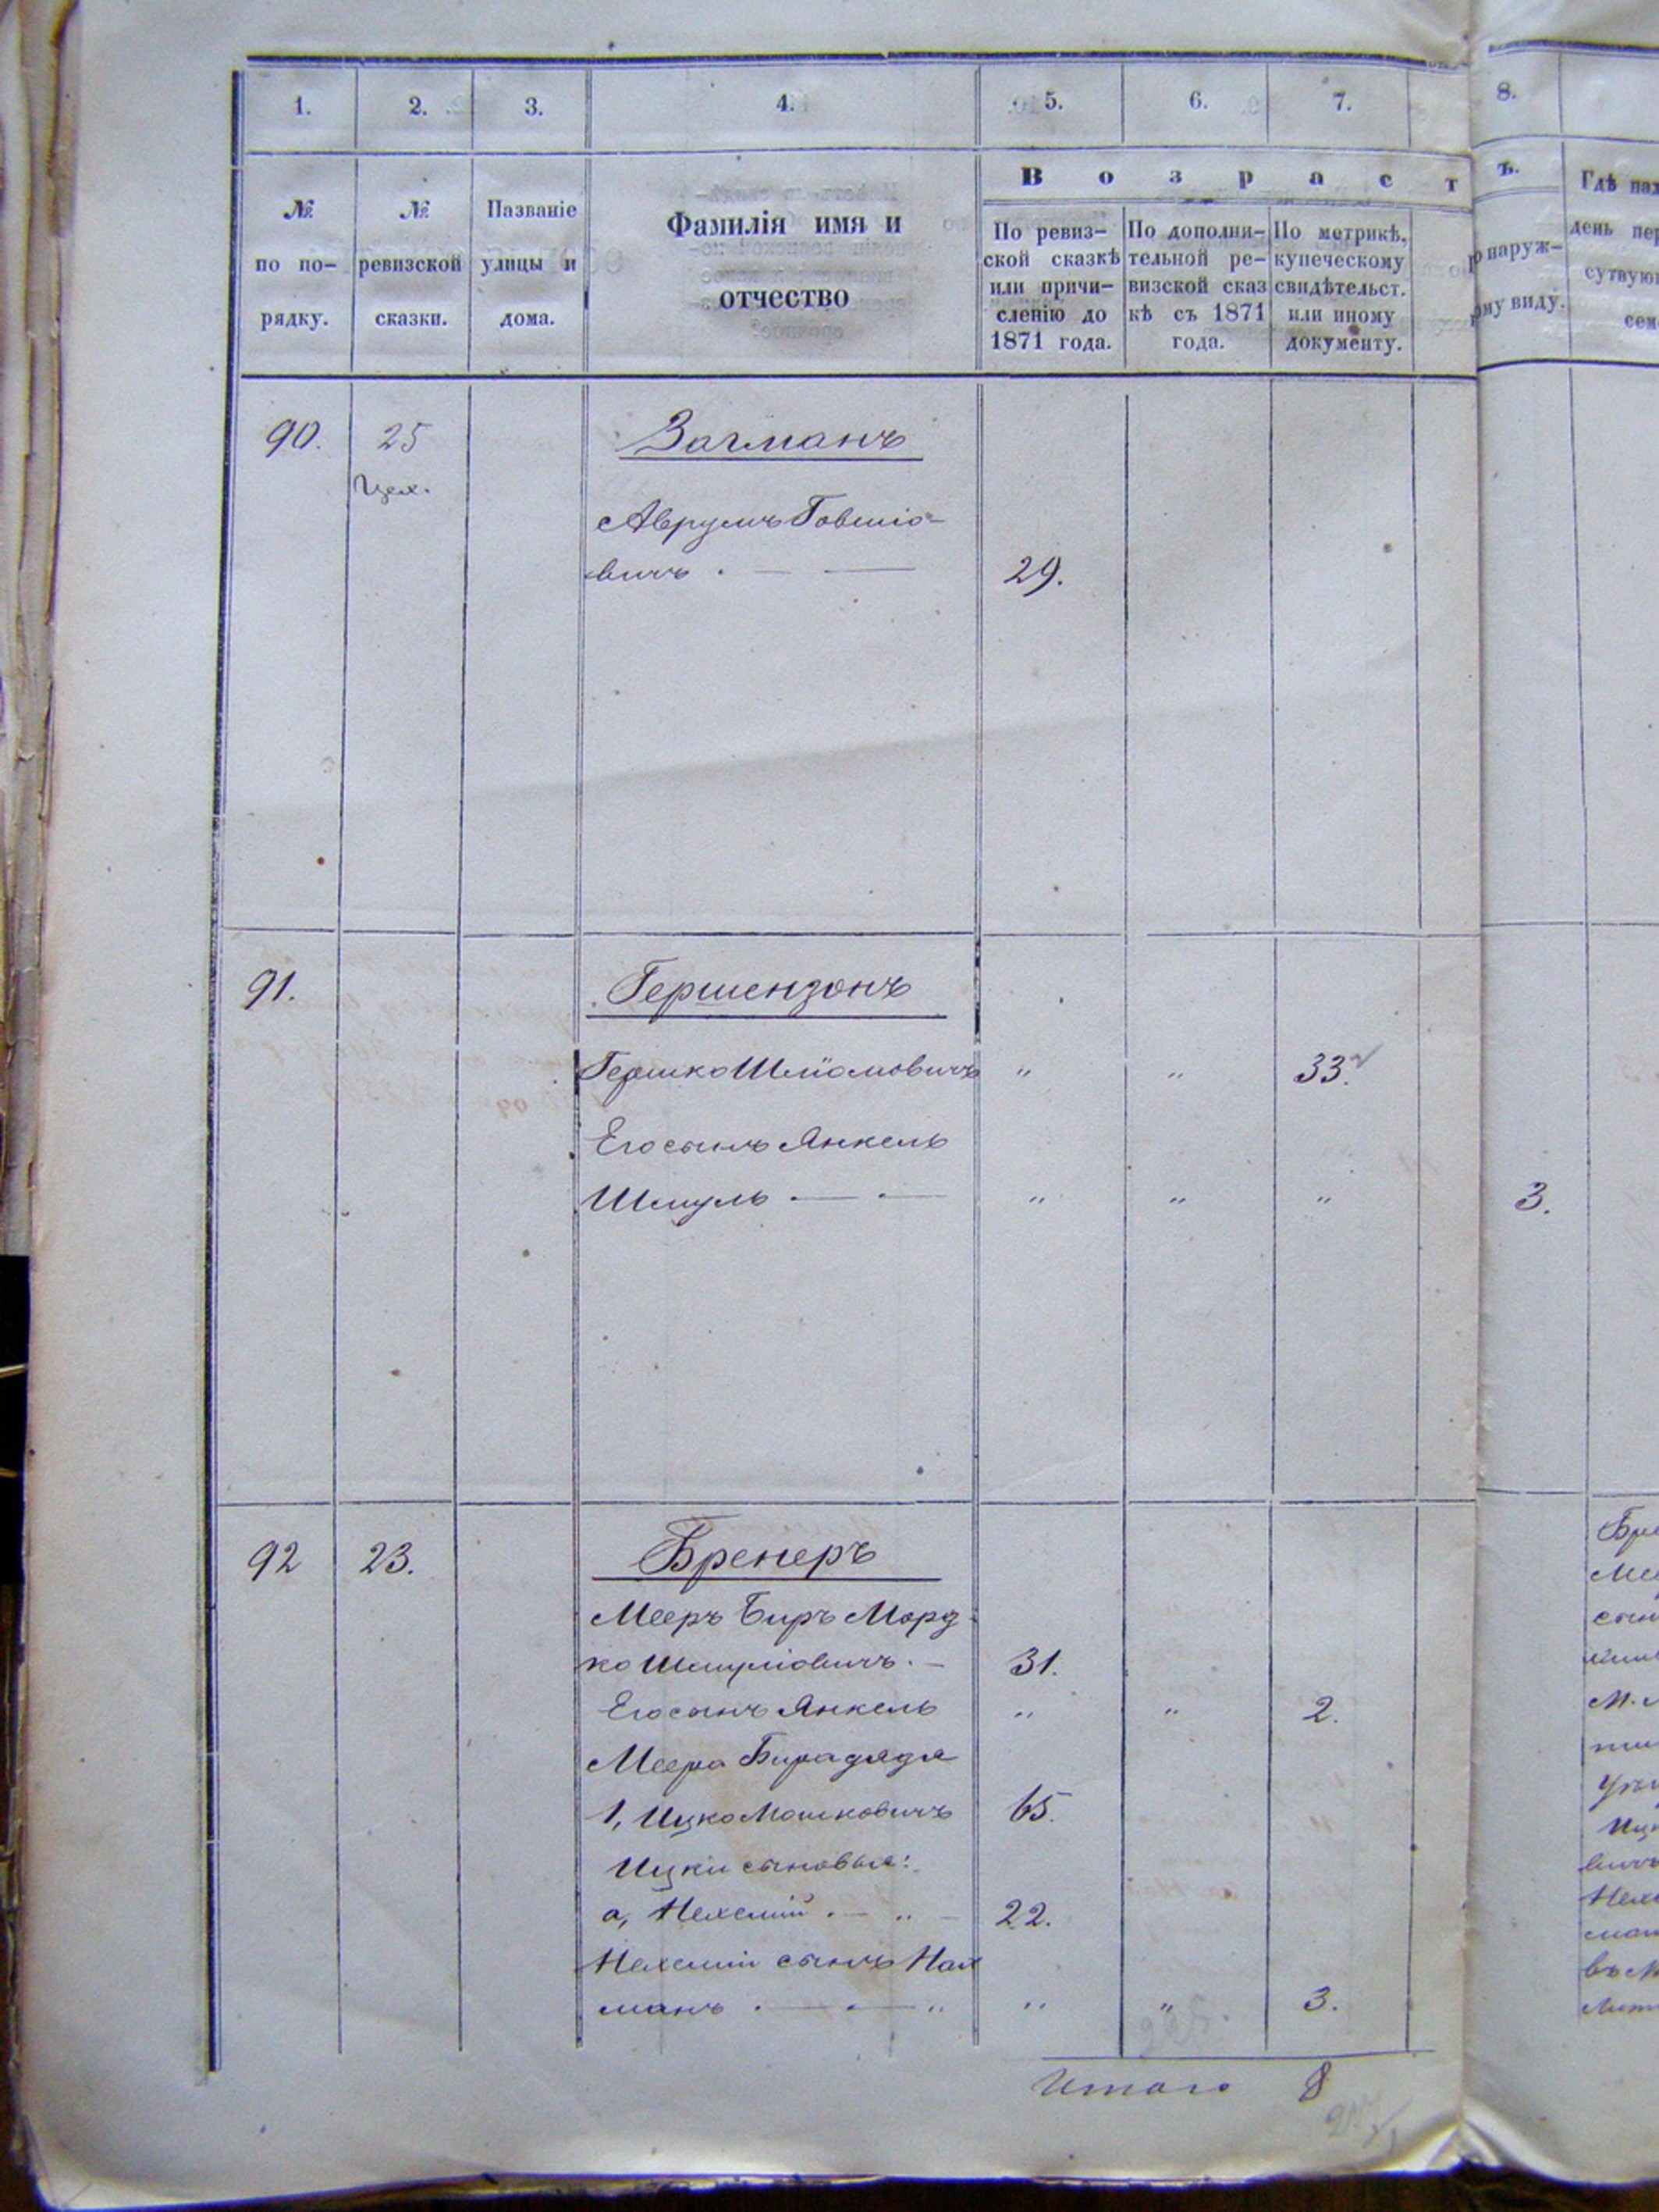 1. 2. 3. 4. 5. 6. 7. 8.
Возраст ъ.
№ по порядку.
№ ревизской сказки.
Названіе улицы и дома.
Фамилія имя и отчество
По ревиз-
ской сказкѣ
или причи-
сленію до
1871 года.
По дополни-
тельной ре-
визской сказ
кѣ съ 1871
года.
По метрикѣ,
купеческому
свидѣтельст.
или иному
документу.
наруж-
ому виду.
Гдѣ
день
90. 25 Загманъ
Цех.
Аврумъ Говшіо-
вичъ . — — 29.
91. Гершензонъ
Гершко Шліомовичъ " " 33.
Его сынъ Янкель
Шмуль — — " " " 3.
92 23. Бренеръ
Мееръ Биръ Морд
ко Шмуліовичъ . — 31.
Его сынъ Янкель " " 2.
Меера Бира дядя
1, Ицко Мошковичъ 65.
Ицки сыновья:
а, Нехемій . — " — 22.
Нехемій сынъ Нах
манъ . — . — " " " 3.
Итого 8